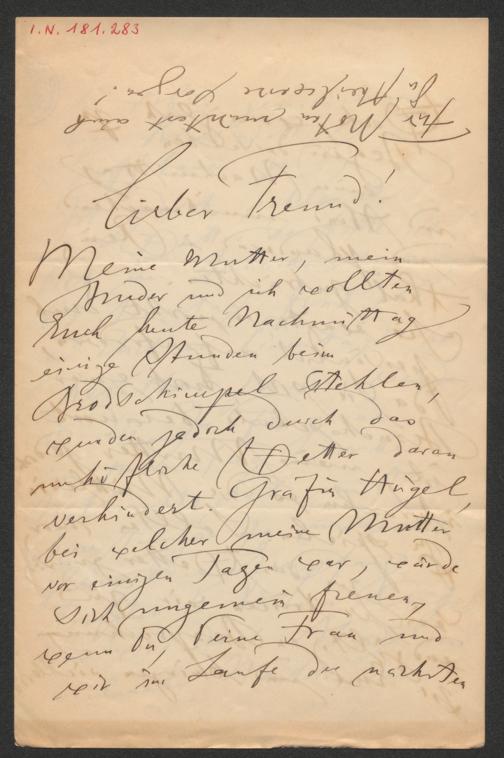 I.N. 181.283
Für Noten müsstest auch
Du Theilweise sorgen!
Lieber Freund!
Meine Mutter, mein
Bruder und ich wollten
Euch heute Nachmittag
einige Stunden beim
Brodschimpel stehlen,
wurden jedoch durch das
unhöfliche Wetter daran
verhindert. Gräfin Hügel,
bei welcher meine Mutter
vor einigen Tagen war, würde
sich ungemein freuen,
wenn Du, Deine Frau und
wir im Laufe der nächsten